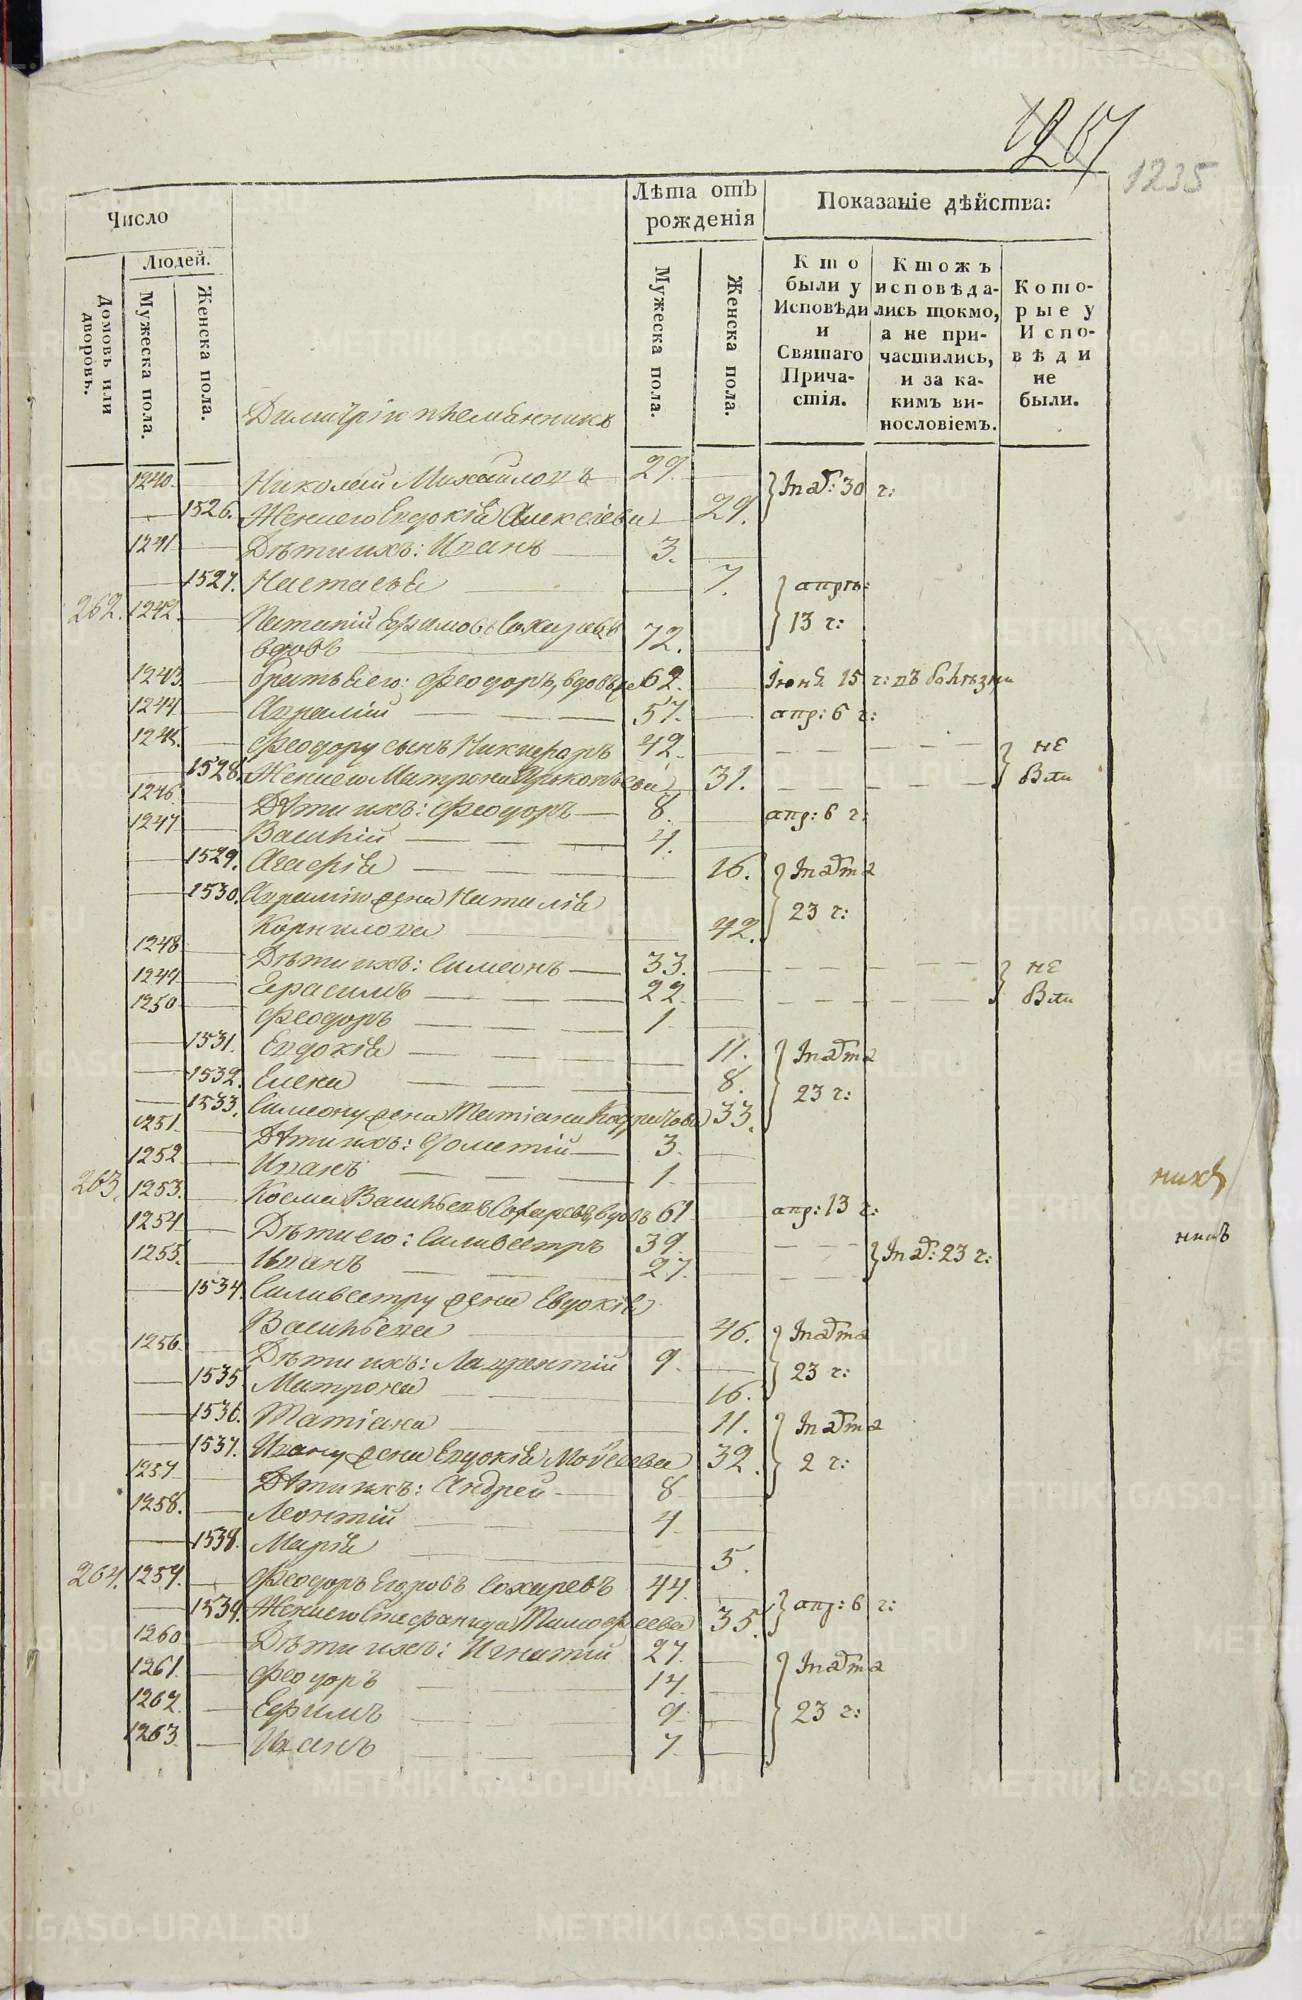 1267
1235
Число
Лѣта отъ рожденія
Показаніе дѣйства:
Людей.
Домовъ или дворовъ.
Мужеска пола.
Женска пола.
Мужеска пола.
Женска пола.
Кто были у Исповѣди и Святаго Причастія.
Ктожъ исповѣдались токмо, а не причастились, и за какимъ винословіемъ.
Которые у Исповѣди не были.
Димитрію племянникъ
1240. Николай Михайловъ 29.
} 30 ч:
1526. Жена его Евдокія Алексіева 29.
1241 Дѣти ихъ: Иванъ 3.
1527. Настасья 7.
262. 1242. Ефимовъ Сохаревъ вдовъ 72.
} апрѣ: 13 ч:
1243. братья его: Феодоръ, вдовъ 62. Іюня 15 ч: въ болѣзни
1244 Аврамій 57. апр: 6 ч:
1245. Феодору сынъ Никифоръ 42
1528. Жена его Матрона Прокопьева 31.
} не
1246 Дѣти ихъ: Феодоръ 8. апр: 6 ч:
1247 Василій 4.
1529. 16.
1530. Аврамію жена Наталія
Корнилова 42.
} 23 ч:
1248 Дѣти ихъ: Симеонъ 33.
1249 Герасимъ 22
} не
1250 Феодоръ 1
1531. Евдокія 11.
1532. Елена 8.
1533. Симеону жена Татіана 33.
} 23 ч:
1251. Дѣти ихъ: Дометій 3.
1252 Иванъ 1.
263. 1253. Косма Васильевъ Сохаревъ, вдовъ 61 апр: 13 ч:
1254 Дѣти его: Силивестръ 39.
1255. Иванъ 27.
} 23 ч:
1534. Силивестру жена Евдокія
Васильева 46.
1256. Дѣти ихъ: Лаврентій 9.
1535. Матрона 16.
} 23 ч:
1536. Татіана 11.
1537. Ивану жена Евдокія Мойсеева 32.
} 2 ч:
1257 Дѣти ихъ: Андрей 8
1258. Леонтій 4
1538. Марія 5.
264. 1259. Феодоръ Егоровъ Сохаревъ 44
1539. Жена его Стефанида Тимофеева 35.
} апр: 6 ч:
1260 Дѣти ихъ: Игнатій 27.
1261. Феодоръ 14
1262 Ефимъ 9
1263 Иванъ 7
} 23 ч:
METRIKI.GASO-URAL.RU